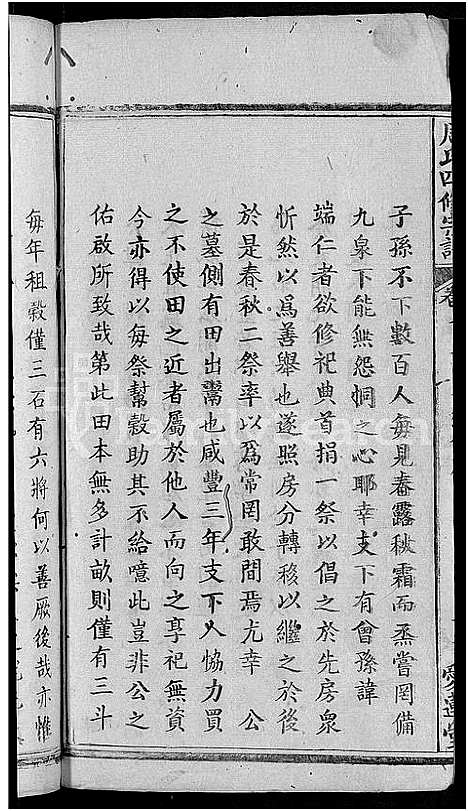 子孫不下數百人每見春露秋霜而烝嘗罔備
九泉下能無怨恫之心耶幸支下有曾孫諱
端仁者欲修祀典首捐一祭以倡之於先房衆
忻然以爲善舉也遂照房分轉移以繼之於後
於是春秋二祭率以爲常罔敢間焉尤幸 公
之墓側有田出鬻也咸豐三年支下人協力買
之不使田之近者屬於他人而向之享祀無資
今亦得以每祭幫穀助其不給噫此豈非公之
佑啟所致哉第此田本無多計畝則僅有三斗
每年租穀僅三石有六將何以善厥後哉亦惟